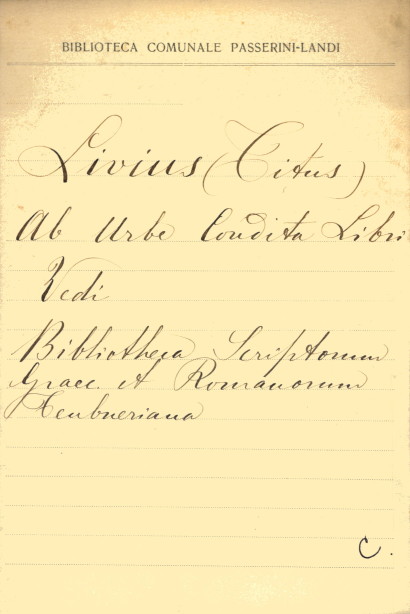 BIBLIOTECA COMUNALE PASSERINI-LANDI
Livius (Titus)
Ab Urbe Condita Libri
Vedi
Bibliotheca Scriptorum
Graec. et Romanorum
Teubneriana
C.